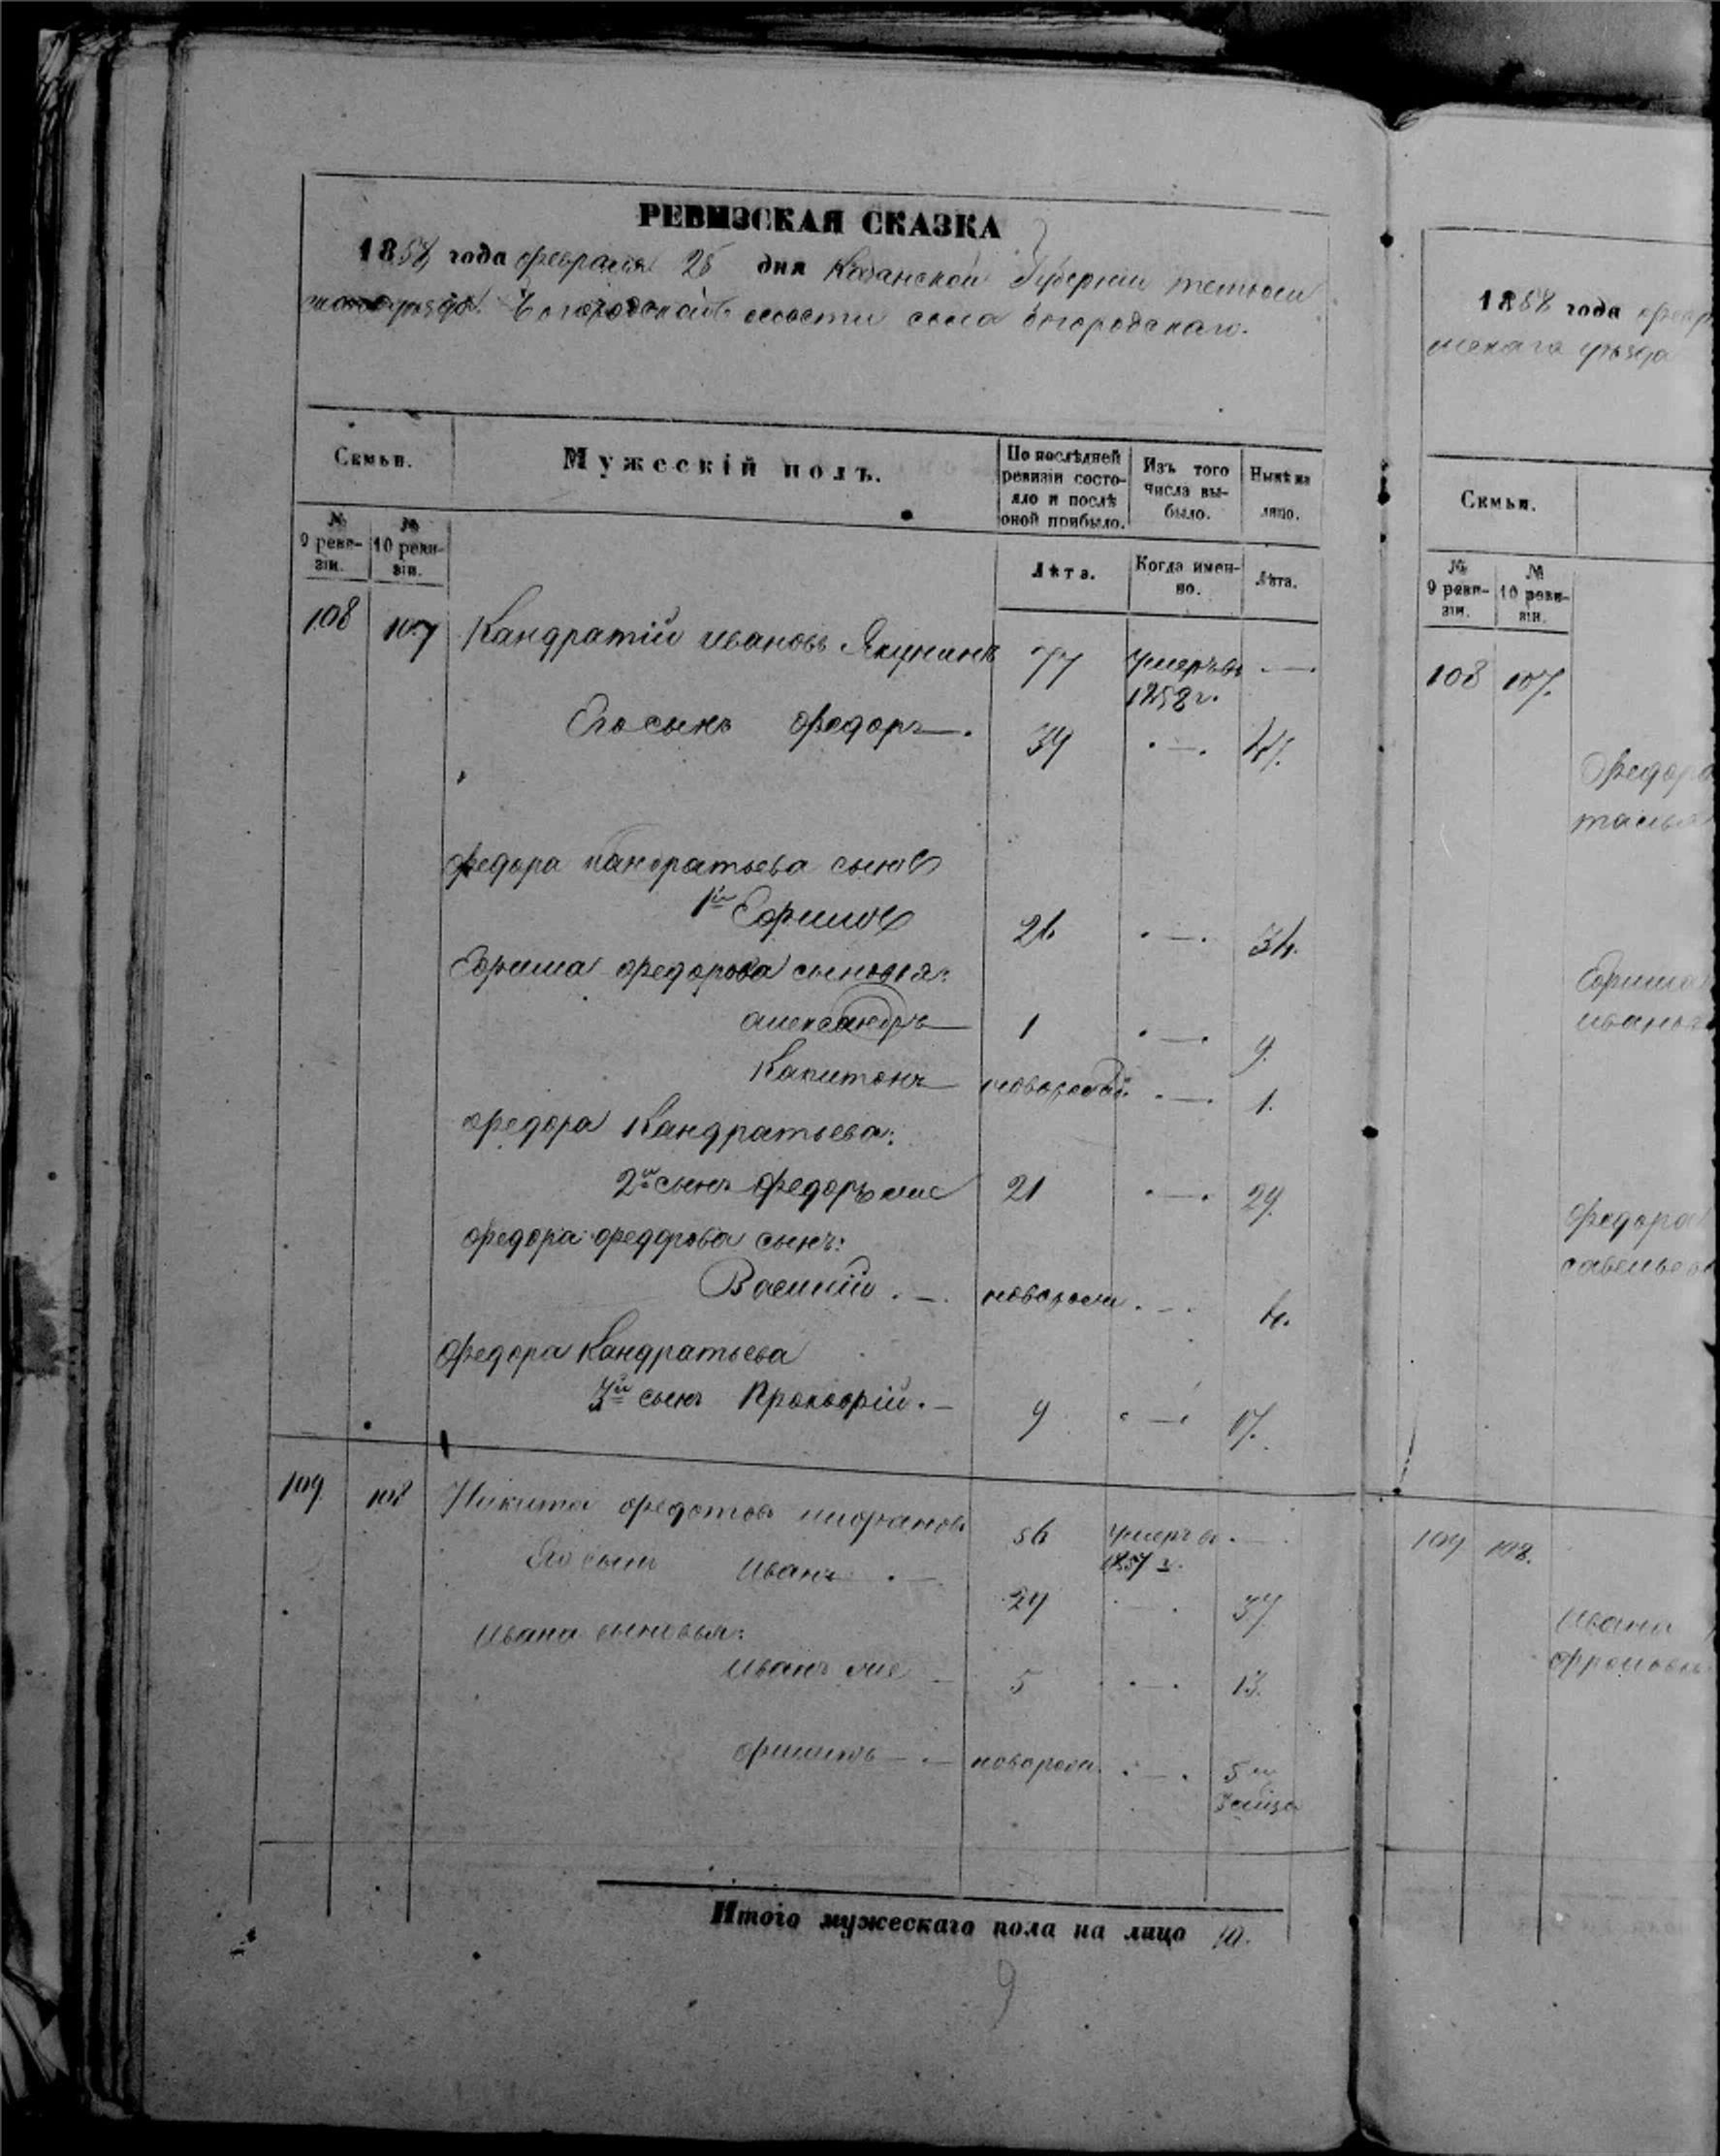 РЕВИЗСКАЯ СКАЗКА
1858 года февраля 25 дня Казанской Губернии тетюш
уезда Богородской волости села Богородскаго.
Семьи.
Мужескій полъ.
По послѣдней ревизіи состояло и послѣ оной прибыло.
Изъ того числа выбыло.
Нынѣ на лицо.
№ 9 ревизіи.
№ 10 ревизіи.
Лѣта.
Когда именно.
Лѣта.
108 107 Кандратій Ивановъ Якунинъ 77 Умеръ въ 1858 г. —
Его сынъ Федоръ 39 — 47.
Федора Кандратьева сынъ
1й Ефимъ 26 — 34.
Ефима Федорова сыновья:
Александръ 1 — 9.
Капитонъ новорожд. — 1.
Федора Кандратьева:
2й сынъ Федоръ же 21 — 29.
Федора Федорова сынъ:
Василій — новорож — 4.
Федора Кандратьева
3й сынъ Прокофій. — 9 — 17.
109 108 Никита Федотовъ 56 Умеръ в 1857 г. —
Его сынъ Иванъ — 29 — 37
Ивана сыновья:
Иванъ же — 5 — 13.
Филипъ — новорож. — 5
Итого мужескаго пола на лицо 10.
9
1858 года
уезда
Семьи.
№ 9 ревизіи.
№ 10 ревизіи.
108 107.
Федора
Ефима
Федора
савельева
109 108.
Ивана